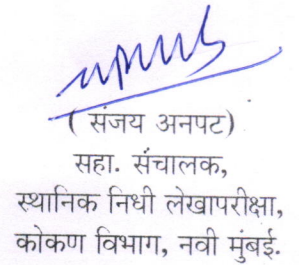 ( संजय अनपट)
सहा. संचालक,
स्थानिक निधी लेखापरीक्षा,
कोकण विभाग, नवी मुंबई.